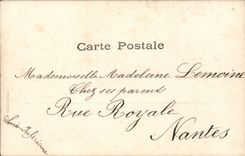 Carte Postale
Mademoiselle Madeleine Lemoine
Chez ses parents
Rue Royale
Nantes
Loire-Inférieure